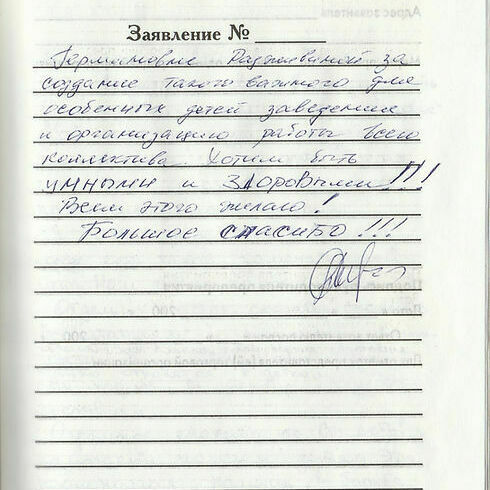 Заявление №
Германовне за
создание такого важного для
особенных детей заведения
и организацию работы всего
коллектива. Хотим быть
умными и здоровыми!!!
Всем этого желаю!
Большое спасибо!!!